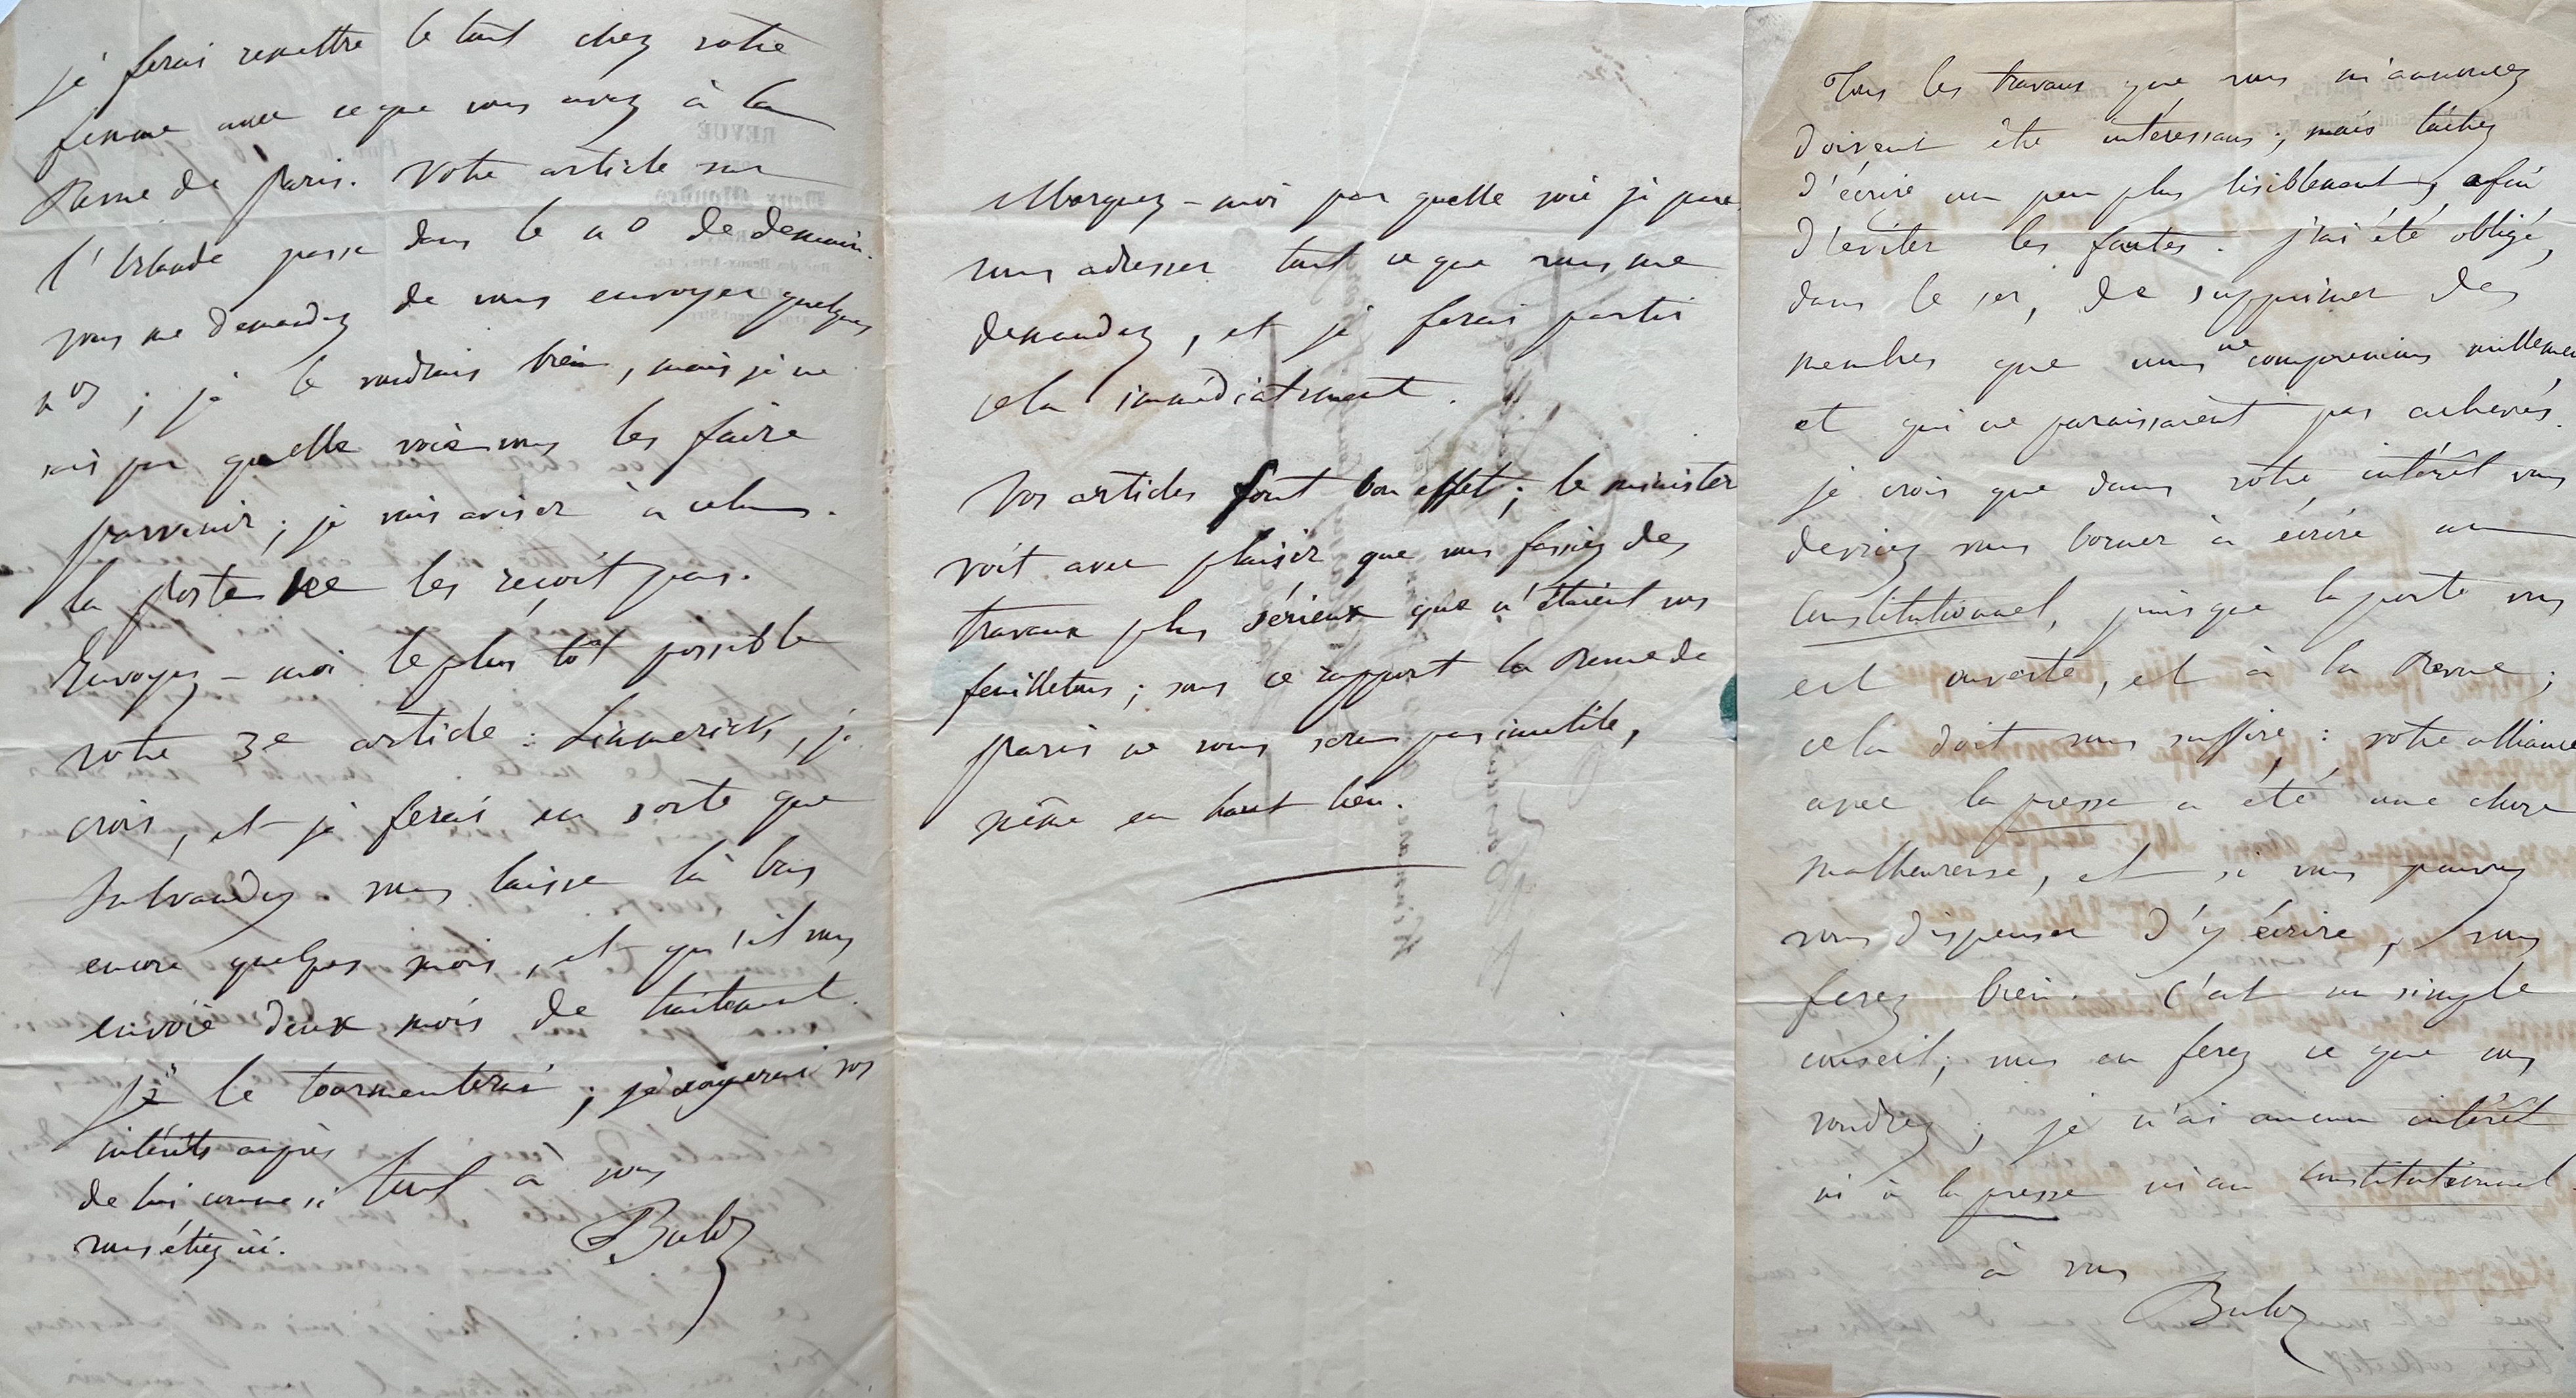 je ferai remettre le tout chez votre
femme avec ce que vous avez à la
Revue de Paris. Votre article sur
l'Irlande passe dans le n° de demain.
vous me demandez de vous envoyer quelques
nos ; je le voudrais bien, mais je ne
sais par quelle voie vous les faire
parvenir ; je vais aviser à cela.
la poste ne les reçoit pas.
Envoyez-moi le plus tôt possible
votre 3e article : Limmerick, je
crois, et je ferai en sorte que
Salvandy vous laisse là bas
encore quelques mois, et qu'il vous
envoie deux mois de traitement.
je le tourmenterai ; je soignerai vos
intérêts auprès
de lui comme si
vous étiez ici.
tout à vous
Buloz
Marquez-moi par quelle voie je puis
vous adresser tout ce que vous me
demandez, et je ferai partir
cela immédiatement.
Vos articles font bon effet ; le minister
voit avec plaisir que vous fassiez des
travaux plus sérieux que n'étaient vos
feuilletons ; sous ce rapport la Revue de
Paris ne vous sera pas inutile,
même en haut lieu.
Tous les travaux que vous m'annoncez
doivent être interessans ; mais tâchez
d'écrire un peu plus lisiblement, afin
d'éviter les fautes. j'ai été obligé,
dans le 1er, de supprimer des
membres que nous ne comprenions nullement
et qui ne paraissaient pas achevés.
je crois que dans votre intérêt vous
devriez vous borner à écrire au
Constitutionnel, puisque la porte vous
est ouverte, et à la Revue ;
cela doit vous suffire : votre alliance
avec la presse a été une chose
malheureuse, et si vous pouvez
vous dispenser d'y écrire, vous
ferez bien. C'est un simple
conseil ; vous en ferez ce que vous
voudrez ; je n'ai aucun intérêt
ni à la presse ni au Constitutionnel.
à vous
Buloz